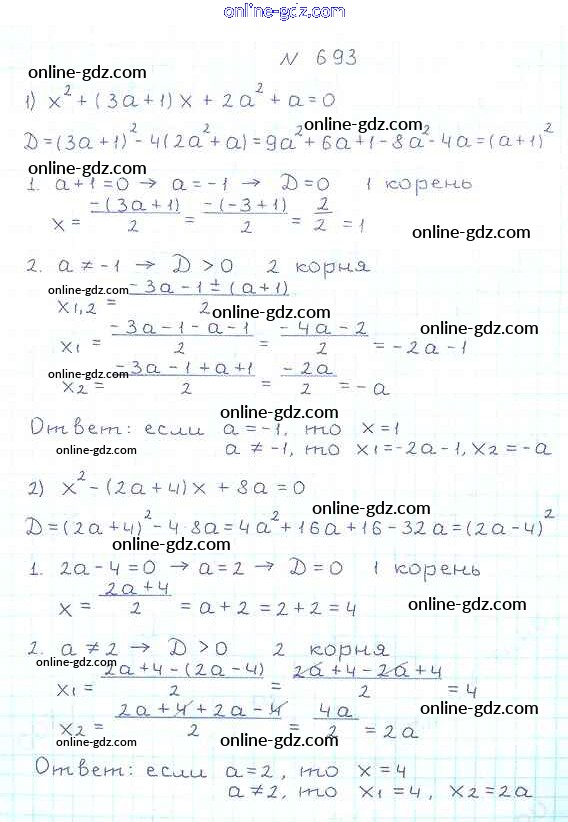 online-gdz.com
N 693
online-gdz.com
1) x² + (3a+1)x + 2a² + a = 0
online-gdz.com
D = (3a+1)² - 4(2a² + a) = 9a² + 6a + 1 - 8a² - 4a = (a+1)²
online-gdz.com
1. a+1 = 0 → a = -1 → D = 0 1 корень
x = -(3a+1)/2 = -(-3+1)/2 = 2/2 = 1
online-gdz.com
2. a ≠ -1 → D > 0 2 корня
online-gdz.com
x1,2 = -3a - 1 ± (a+1)/2
online-gdz.com
x1 = -3a - 1 - a - 1/2 = -4a - 2/2 = -2a - 1
online-gdz.com
x2 = -3a - 1 + a + 1/2 = -2a/2 = -a
online-gdz.com
online-gdz.com
Ответ: если a = -1, то x = 1
a ≠ -1, то x1 = -2a - 1, x2 = -a
online-gdz.com
2) x² - (2a+4)x + 8a = 0
online-gdz.com
D = (2a+4)² - 4·8a = 4a² + 16a + 16 - 32a = (2a-4)²
online-gdz.com
1. 2a - 4 = 0 → a = 2 → D = 0 1 корень
x = 2a+4/2 = a + 2 = 2 + 2 = 4
online-gdz.com
2. a ≠ 2 → D > 0 2 корня
online-gdz.com
x1 = 2a + 4 - (2a - 4)/2 = 2a + 4 - 2a + 4/2 = 4
online-gdz.com
x2 = 2a + 4 + 2a - 4/2 = 4a/2 = 2a
online-gdz.com
online-gdz.com
Ответ: если a = 2, то x = 4
a ≠ 2, то x1 = 4, x2 = 2a
online-gdz.com
online-gdz.com